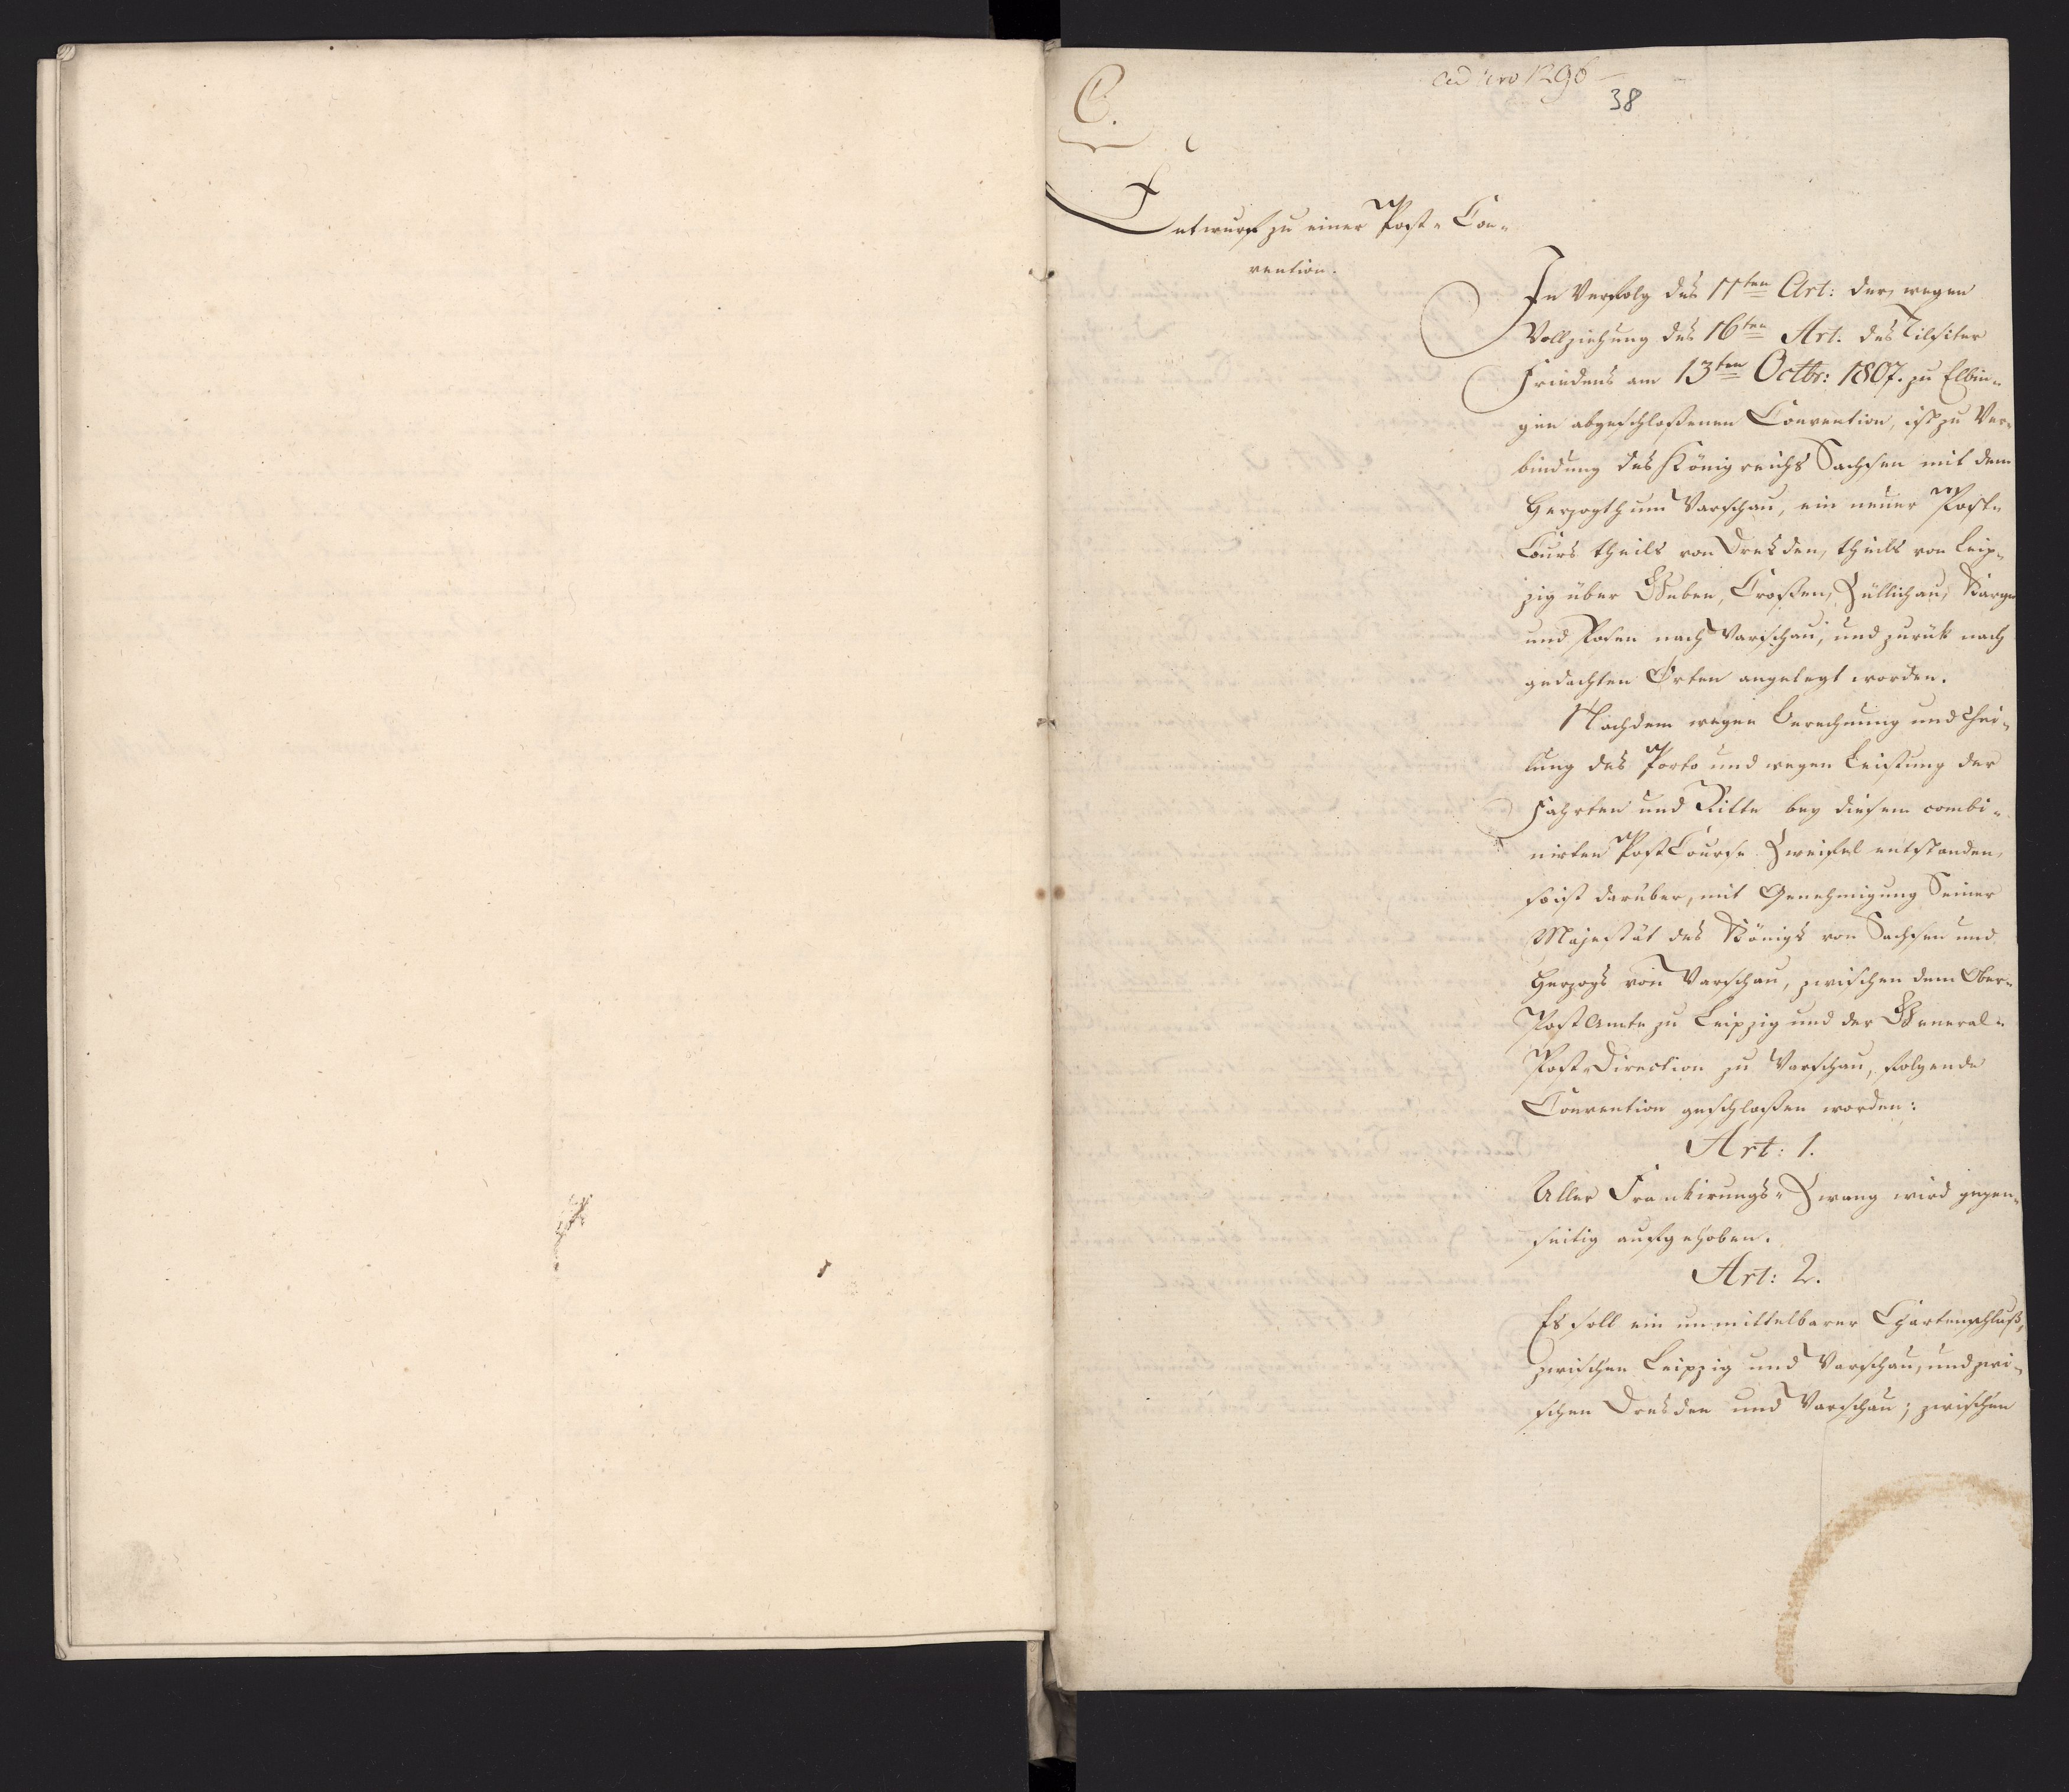 ad nro 1296
38
C.
Entwurf zu einer Post-Con-
vention.
In Verfolg des 11ten Art: der, wegen
Vollziehung des 16ten Art. des Tilsiter
Friedens am 13ten Octbr: 1807. zu Elbin-
gen abgeschloßenen Convention, ist zu Ver-
bindung des Königreichs Sachsen mit dem
Herzogthum Warschau, ein neuer Post-
Cours theils von Dresden, theils von Leip-
zig über Guben, Croßen, Züllichau, Karge
und Posen nach Warschau, und zurük nach
gedachten Orten angelegt worden.
Nachdem wegen Berechnung und Thei-
lung des Porto und wegen Leistung der
Fahrten und Ritte bey diesem combi-
nirten Post Course Zweifel entstanden,
so ist darüber, mit Genehmigung Seiner
Majestät des Königs von Sachsen und
Herzogs von Warschau, zwischen dem Ober-
Post Amte zu Leipzig und der General-
Post-Direction zu Warschau, folgende
Convention geschloßen worden:
Art: 1.
Aller Frankirungs-Zwang wird gegen-
seitig aufgehoben.
Art: 2.
Es soll ein unmittelbarer Chartenschluß,
zwischen Leipzig und Warschau, und zwi-
schen Dresden und Warschau; zwischen